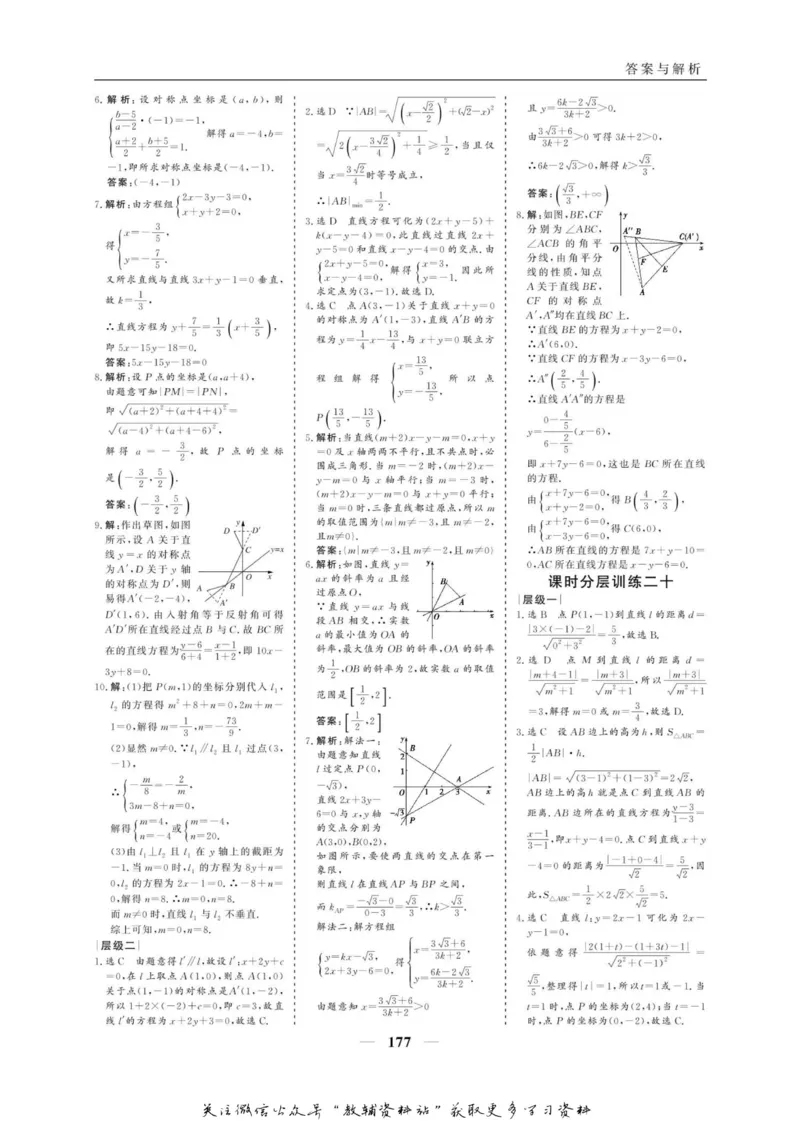 答案与解析
6.解析:设对称点坐标是(a,b),则
{ (b-5)/(a-2)·(-1)=-1,
(a+2)/2+(b+5)/2=1. 解得a=-4,b=
-1,即所求对称点坐标是(-4,-1).
答案:(-4,-1)
7.解析:由方程组{ 2x-3y-3=0,
x+y+2=0,
得{ x=-3/5,
y=-7/5.
又所求直线与直线3x+y-1=0垂直,
故k=1/3,
∴直线方程为y+7/5=1/3(x+3/5),
即5x-15y-18=0.
答案:5x-15y-18=0
8.解析:设P点的坐标是(a,a+4),
由题意可知|PM|=|PN|,
即√((a+2)²+(a+4+4)²)=
√((a-4)²+(a+4-6)²),
解得a=-3/2,故P点的坐标
是(-3/2,5/2).
答案:(-3/2,5/2)
9.解:作出草图,如图
所示,设A关于直
线y=x的对称点
为A′,D关于y轴
的对称点为D′,则
易得A′(-2,-4),
D′(1,6).由入射角等于反射角可得
A′D′所在直线经过点B与C.故BC所
在的直线方程为(y-6)/(6+4)=(x-1)/(1+2),即10x-
3y+8=0.
y D D′ C y=x O x A B A′
10.解:(1)把P(m,1)的坐标分别代入l₁,
l₂的方程得m²+8+n=0,2m+m-
1=0,解得m=1/3,n=-73/9.
(2)显然m≠0.∵l₁∥l₂且l₁过点(3,
-1),
∴{ -m/8=-2/m,
3m-8+n=0,
解得{ m=4,
n=-4 或{ m=-4,
n=20.
(3)由l₁⊥l₂且l₁在y轴上的截距为
-1.当m=0时,l₁的方程为8y+n=
0,l₂的方程为2x-1=0.∴-8+n=
0,解得n=8.∴m=0,n=8.
而m≠0时,直线l₁与l₂不垂直.
综上可知,m=0,n=8.
|层级二|
1.选C 由题意得l′∥l,故设l′:x+2y+c
=0,在l上取点A(1,0),则点A(1,0)
关于点(1,-1)的对称点是A′(1,-2),
所以1+2×(-2)+c=0,即c=3,故直
线l′的方程为x+2y+3=0,故选C.
2.选D ∵|AB|=√((x-√2/2)²+(√2-x)²)
=√(2(x-3√2/4)²+1/4)≥1/2,当且仅
当x=3√2/4时等号成立,
∴|AB|min=1/2.
3.选D 直线方程可化为(2x+y-5)+
k(x-y-4)=0,此直线过直线2x+
y-5=0和直线x-y-4=0的交点.由
{ 2x+y-5=0,
x-y-4=0, 解得{ x=3,
y=-1. 因此所
求定点为(3,-1).故选D.
4.选C 点A(3,-1)关于直线x+y=0
的对称点为A′(1,-3),直线A′B的方
程为y=1/4x-13/4,与x+y=0联立方
程组解得{ x=13/5,
y=-13/5, 所以点
P(13/5,-13/5).
5.解析:当直线(m+2)x-y-m=0,x+y
=0及x轴两两不平行,且不共点时,必
围成三角形.当m=-2时,(m+2)x-
y-m=0与x轴平行;当m=-3时,
(m+2)x-y-m=0与x+y=0平行;
当m=0时,三条直线都过原点,所以m
的取值范围为{m|m≠-3,且m≠-2,
且m≠0}.
答案:{m|m≠-3,且m≠-2,且m≠0}
6.解析:如图,直线y=
ax的斜率为a且经
过原点O,
∵直线y=ax与线
段AB相交,∴实数
a的最小值为OA的
y B A O x
斜率,最大值为OB的斜率,OA的斜率
为1/2,OB的斜率为2,故实数a的取值
范围是[1/2,2].
答案:[1/2,2]
7.解析:解法一:
由题意知直线
l过定点P(0,
-√3),
直线2x+3y-
6=0与x,y轴
的交点分别为
A(3,0),B(0,2),
y B 2 1 A O 1 2 3 x -√3 P
如图所示,要使两直线的交点在第一
象限,
则直线l在直线AP与BP之间,
而kAP=(-√3-0)/(0-3)=√3/3,∴k>√3/3.
解法二:解方程组
{ y=kx-√3,
2x+3y-6=0, 得{ x=(3√3+6)/(3k+2),
y=(6k-2√3)/(3k+2).
由题意知x=(3√3+6)/(3k+2)>0
且y=(6k-2√3)/(3k+2)>0.
由(3√3+6)/(3k+2)>0可得3k+2>0,
∴6k-2√3>0,解得k>√3/3.
答案:(√3/3,+∞)
8.解:如图,BE,CF
分别为∠ABC,
∠ACB的角平
分线,由角平分
线的性质,知点
A关于直线BE,
CF的对称点
A′,A″均在直线BC上.
y A″ B C(A′) O x F E A
∵直线BE的方程为x+y-2=0,
∴A′(6,0).
∵直线CF的方程为x-3y-6=0,
∴A″(2/5,4/5).
∴直线A′A″的方程是
y=(0-4/5)/(6-2/5)(x-6),
即x+7y-6=0,这也是BC所在直线
的方程.
由{ x+7y-6=0,
x+y-2=0, 得B(4/3,2/3),
由{ x+7y-6=0,
x-3y-6=0, 得C(6,0),
∴AB所在直线的方程是7x+y-10=
0,AC所在直线方程是x-y-6=0.
课时分层训练二十
|层级一|
1.选B 点P(1,-1)到直线l的距离d=
|3×(-1)-2|/√(0²+3²)=5/3,故选B.
2.选D 点M到直线l的距离d=
|m+4-1|/√(m²+1)=|m+3|/√(m²+1),所以|m+3|/√(m²+1)
=3,解得m=0或m=3/4,故选D.
3.选C 设AB边上的高为h,则S△ABC=
1/2|AB|·h.
|AB|=√((3-1)²+(1-3)²)=2√2,
AB边上的高h就是点C到直线AB的
距离.AB边所在的直线方程为(y-3)/(1-3)=
(x-1)/(3-1),即x+y-4=0.点C到直线x+y
-4=0的距离为|-1+0-4|/√2=5/√2,因
此,S△ABC=1/2×2√2×5/√2=5.
4.选C 直线l:y=2x-1可化为2x-
y-1=0,
依题意得|2(1+t)-(1+3t)-1|/√(2²+(-1)²)=
√5/5,整理得|t|=1,所以t=1或-1.当
t=1时,点P的坐标为(2,4);当t=-1
时,点P的坐标为(0,-2),故选C.
— 177 —
关注微信公众号“教辅资料站”获取更多学习资料